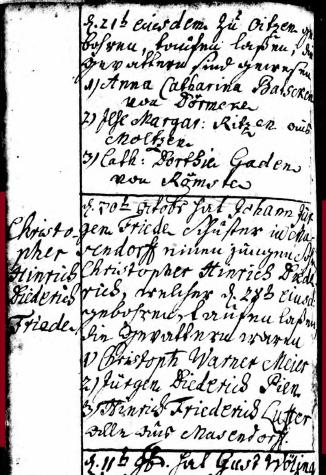 d. 21t ejusdem zu Oitzen ge
bohren, taufen laßen, die
Gevattern sind gewesen
1) Anna Catharina
von
2) Ilse Margar: aus
Moltzen
3) Cath: Dorthie Gaden
von Römste
Christo-
pher
Hinrich
Diederich
Friede.
d. 30t Octobr hat Johann Jür
gen Friede Schuster in Ma
sendorff einen jungen
Christopher Hinrich Diede
rich, welcher d. 28t ejusd
gebohren, taufen laßen
die Gevattern waren
1) Christoph Warner Meier
2) Jürgen Diederich
3) Hinrich Friederich
alle aus Masendorf
d. 11t hat